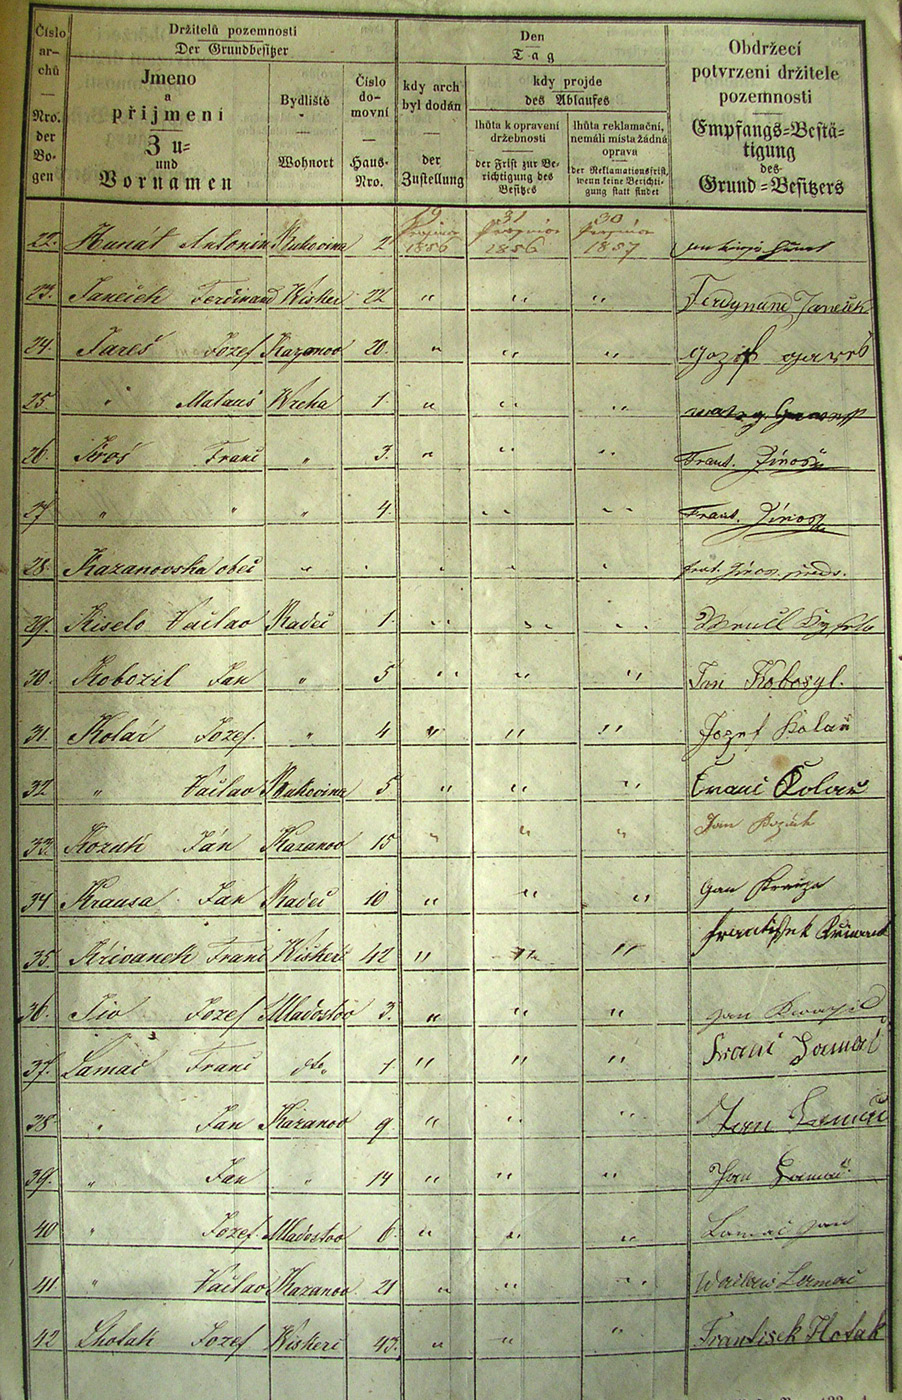 Číslo archů — Nro. der Bogen
Držitelů pozemnosti
Der Grundbesitzer
Jmeno
a
příjmení
Zu-
und
Vornamen
Bydliště
Wohnort
Číslo
do-
movní
Haus-
Nro.
Den
Tag
kdy arch
byl dodán
der
Zustellung
kdy projde
des Ablaufes
lhůta k opravení
držebnosti
der Frist zur Be-
richtigung des
Besitzes
lhůta reklamační,
nemáli místa žádná
oprava
der Reklamationsfrist,
wenn keine Berichti-
gung statt findet
Obdržecí
potvrzení držitele
pozemnosti
Empfangs-Bestä-
tigung
des
Grund-Besitzers
22. Hanát Antonin Bukovina 2 19 Prosince 1856 31 Prosince 1856 30 Prosince 1857
23. Janeček Ferdinand Wisker 22 " " " Ferdynand Janeček
24. Jareš Jozef Kazanov 20. " " " Jozef Jareš
25. " Matauš Wrcha 1 " " "
26. Jiroš Franc " 3. " " " Frant. Jirosz
27. " " " 4. " " Frant. Jirosz
28. Kazanovska obec " " " " " Frat. Jiros. předs.
29. Kiselo Vačlav Radeč 1. " " "
30. Kobozil Jan " 5 " " " Jan Kobosyl.
31. Kolař Jozef. " 4 " " " Jozef Kolař
32 " Vačlav Bukovina 5 " " " Kolař
33. Kozák Ján Kazanov 15 " " " Jan Kozak
34 Krausa Jan Radeč 10 " " " Jan
35. Křivanek Franc Wisker 42 " " " František Křiwanek
36. Jozef Mladostov 3. " " " Jan Kwapil
37. Lamač Franc dto 1. " " " Franc Lamač
38. " Jan Kazanov 9 " " " Jan Lamač
39. " Jan " 14 " " " Jan Lamač
40 " Jozef Mladostov 6. " " " Lamač Jan
41. " Vačlav Kazanov 21 " " " Lamač
42 Lhotak Jozef Wiskeri 43. " " " Frantisek Hotak